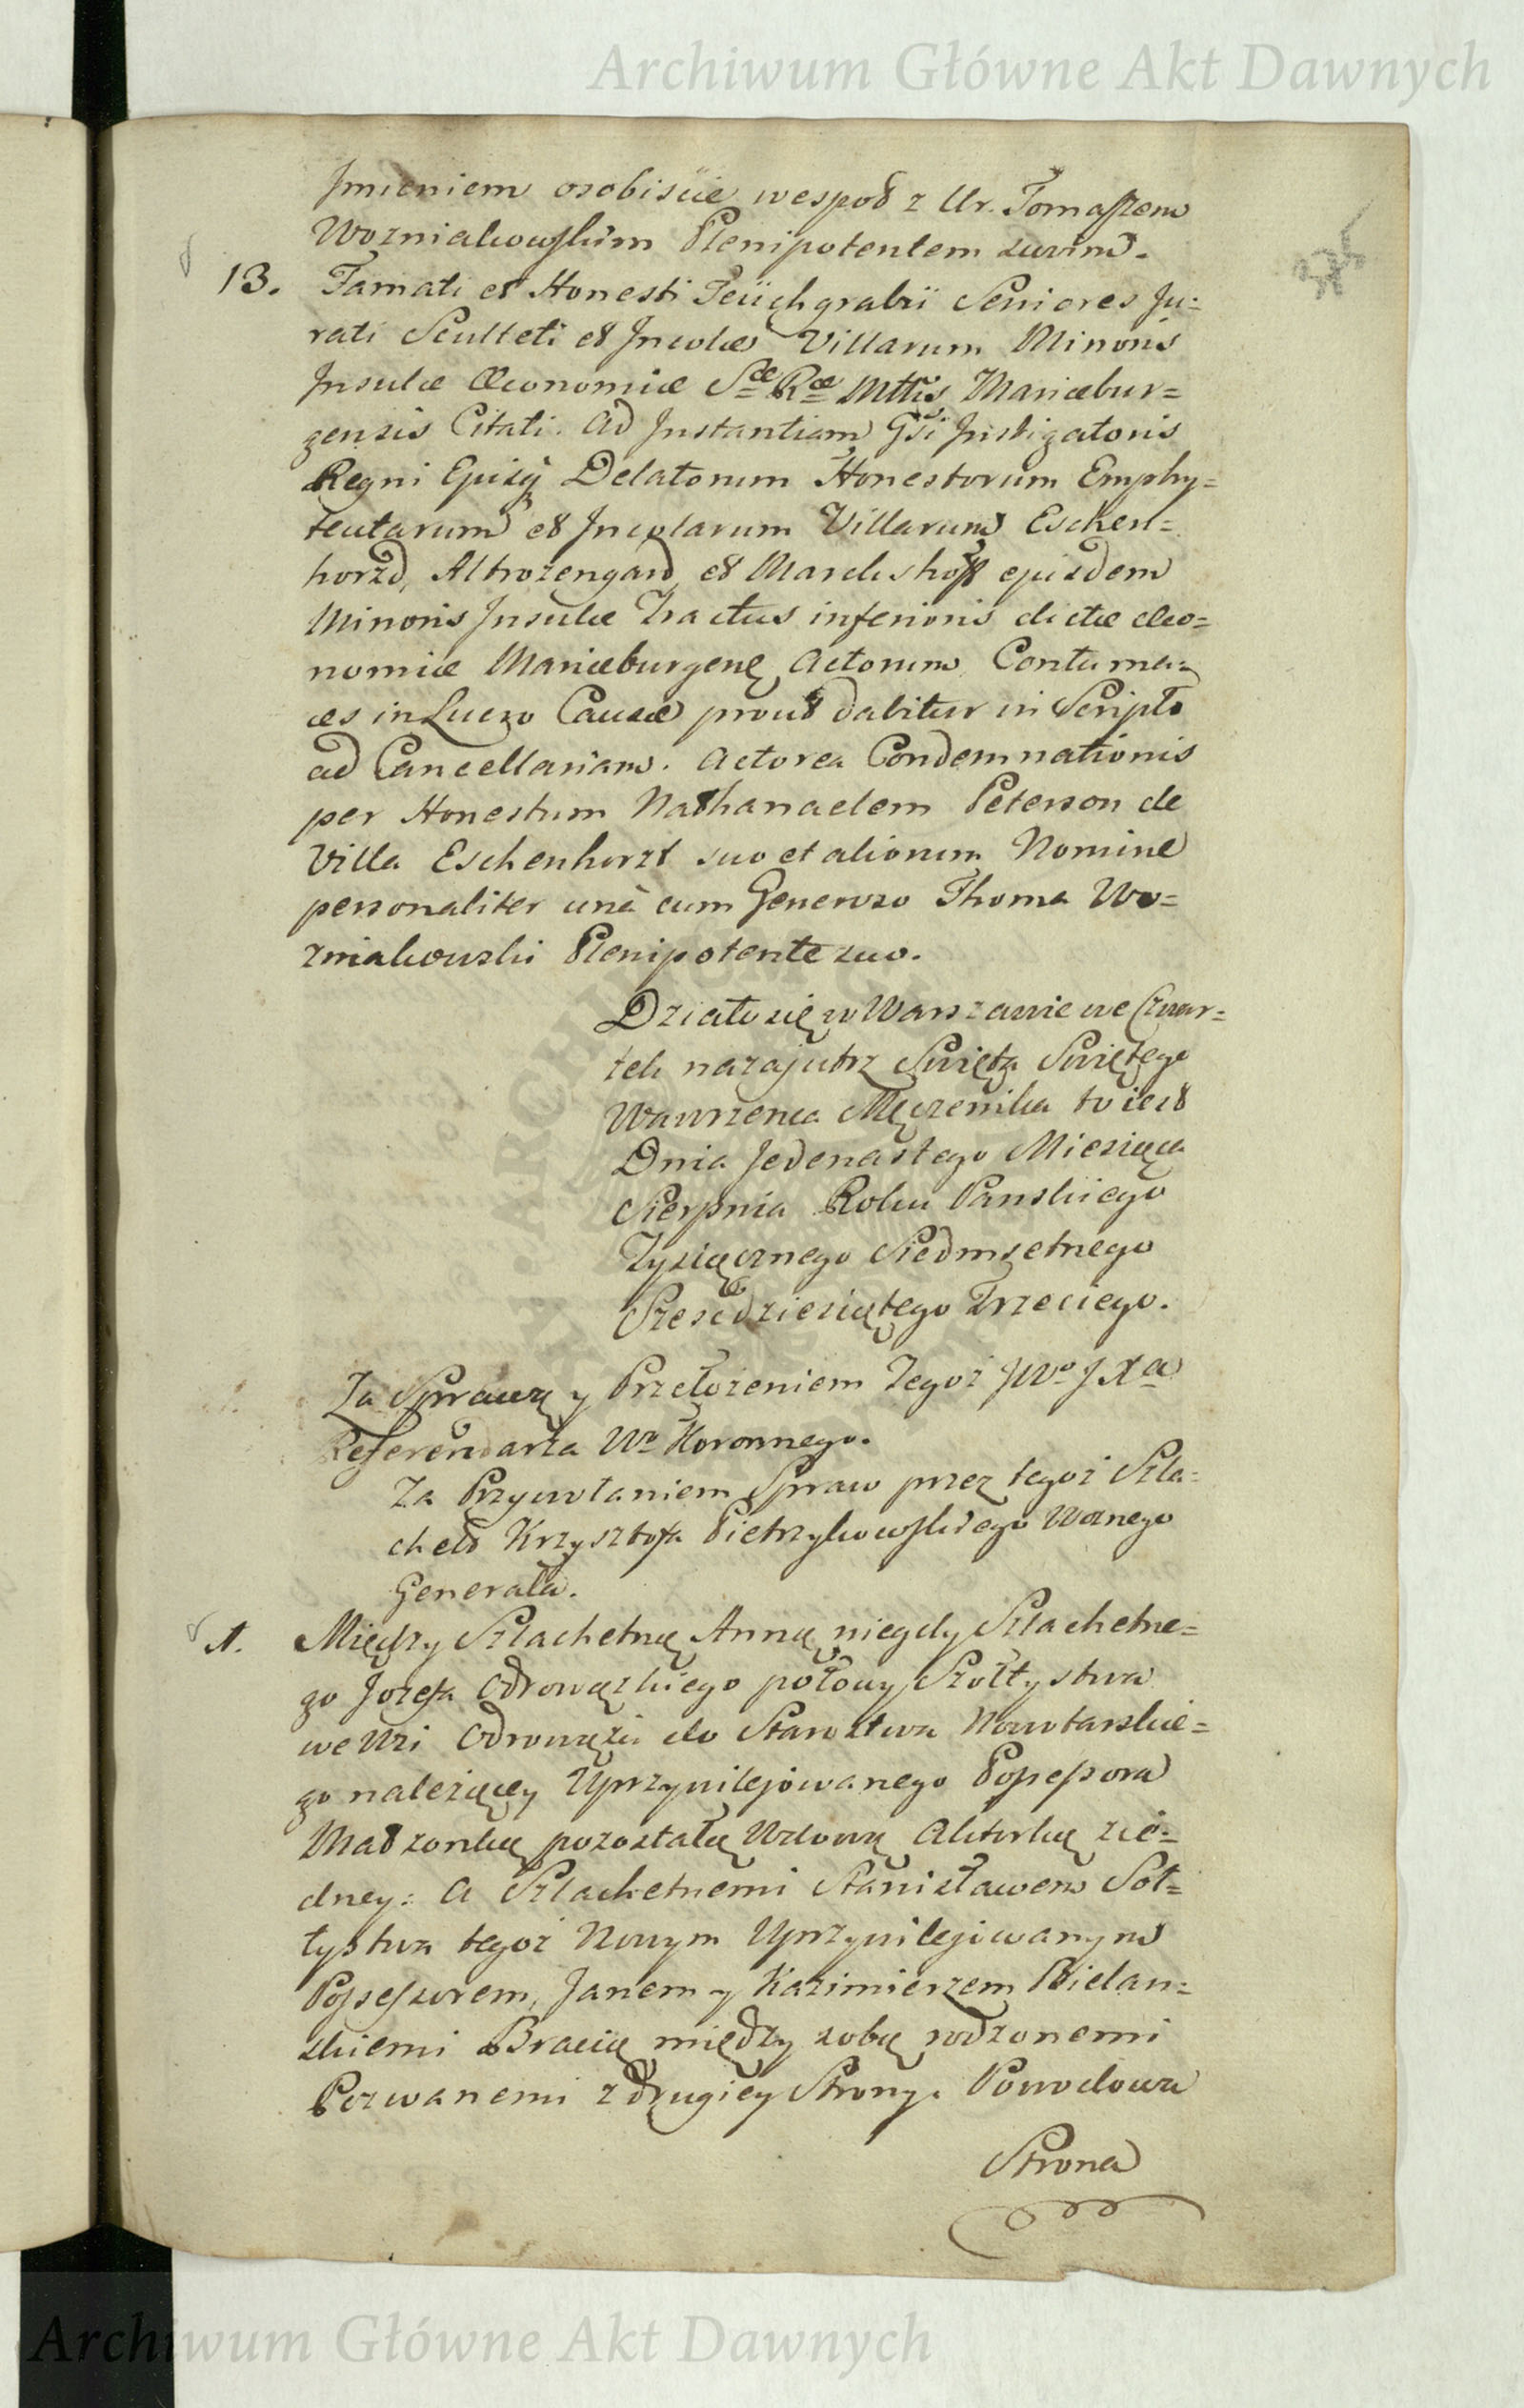 Archiwum Główne Akt Dawnych
Jmieniem osobiscie wespoł z Ur. Tomaszem
Wozniakowskim Plenipotentem swim.
13. Famati et Honesti Teüchgrabii Seniores Ju=
rati Sculteti et Incolæ Villarum Minoris
Insulæ Œconomiæ Sæ Ræ Mttis Mariæbur=
gensis Citati. Ad Instantiam Gsi Instigatoris
Regni Ejusq Delatorum Honestorum Emphy=
teutarum et Incolarum Villarum Eschen=
horzd, Altrozengard, et Markushoff ejusdem
Minoris Insulæ Tractus inferioris dictæ Œco=
nomiæ Mariæburgenę Actorum Contuma=
ces in Lucro Causæ prout dabitur in Scripto
ad Cancellariam. Actorea Condemnationis
per Honestum Nathanaelem Peterson de
Villa Eschenhorzt suo et aliorum Nomine
personaliter unà cum Generoso Thoma Wo=
zniakowski Plenipotente suo.
Działo się w Warszawie we Czwar=
tek nazajutrz Swięta Swiętego
Wawrzenca Męczenika to iest
Dnia Jedenastego Miesiąca
Sierpnia Roku Panskiego
Tysiącznego Siedmsetnego
Szescdziesiątego Trzeciego.
Za Sprawą y Przełozeniem Tegoż JWo JXa
Referendarza Wo Koronnego.
Za Przywołaniem Spraw przez tegoż Szla=
chetd Krzysztofa Pietrzykowskiego Woznego
Generała.
1. Między Szlachetną Anną niegdy Szlachetne=
go Jozefa Odrowązkiego połowy Szołtystwa
we Wsi Odrowąziu do Starostwa Nowotarskie=
go nalezącey Uprzywilejowanego Possessora
Małzonką pozostałą Wdową Aktorką zie=
dney: A Szlachetnemi Stanisławem Soł=
tystwa tegoż Nowym Uprzywilejowanym
Possessorem, Janem y Kazimierzem Bielan=
skiemi Bracią między sobą rodzonemi
Pozwanemi z drugiey Strony. Powodowa
Strona
Archiwum Główne Akt Dawnych